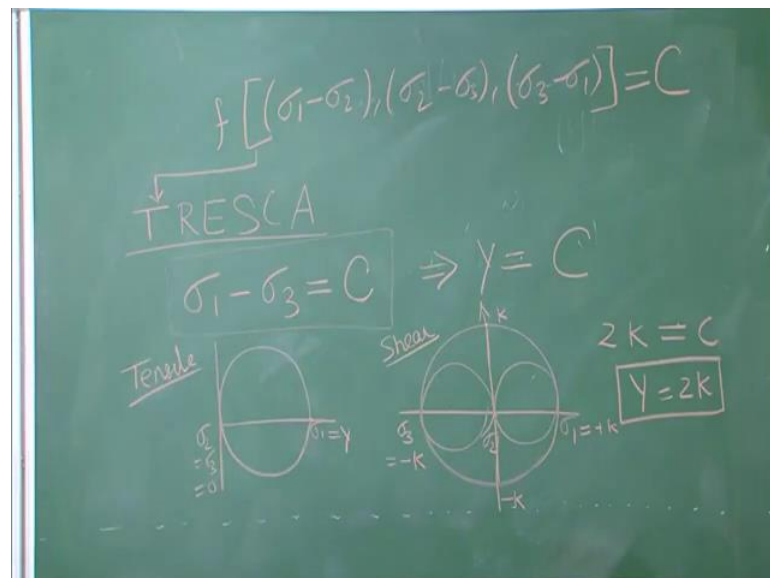 f[(σ₁-σ₂),(σ₂-σ₃),(σ₃-σ₁)]=C
TRESCA
σ₁-σ₃=C ⇒ Y=C
Tensile
σ₂
=σ₃
=0
σ₁=Y
Shear
k
σ₃
=-k
σ₂
σ₁=+k
-k
2k=C
Y=2k